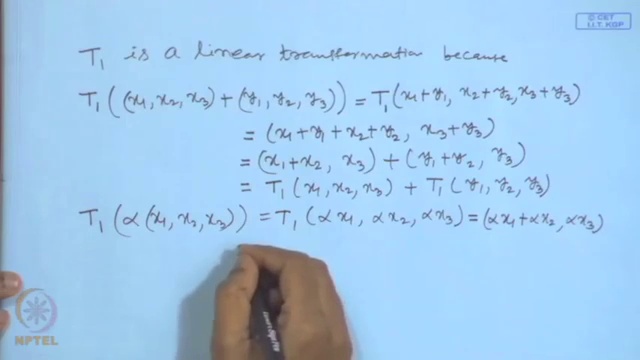 © CET
I.I.T. KGP
T₁ is a linear transformation because
T₁((x₁, x₂, x₃) + (y₁, y₂, y₃)) = T₁(x₁+y₁, x₂+y₂, x₃+y₃)
= (x₁+y₁+x₂+y₂, x₃+y₃)
= (x₁+x₂, x₃) + (y₁+y₂, y₃)
= T₁(x₁, x₂, x₃) + T₁(y₁, y₂, y₃)
T₁(α(x₁, x₂, x₃)) = T₁(αx₁, αx₂, αx₃) = (αx₁+αx₂, αx₃)
NPTEL